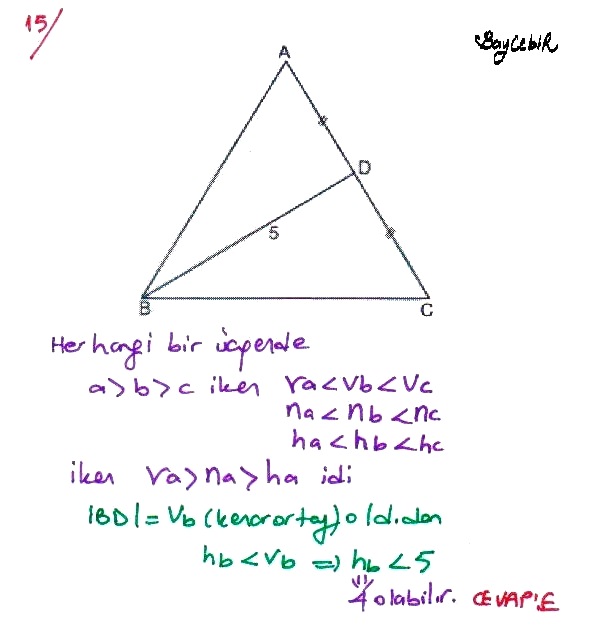 15/
BayCebiR
A
D
5
B
C
Herhangi bir üçgende
a>b>c iken Va<Vb<Vc
na<nb<nc
ha<hb<hc
iken Va>na>ha idi
|BD|=Vb (kenarortay) old.dan
hb<Vb ⇒ hb<5
4 olabilir. CEVAP:E